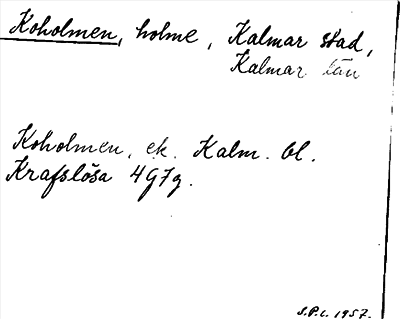 Koholmen, holme, Kalmar stad,
Kalmar län
Koholmen, ek. Kalm. bl.
Krafslösa 4G7g.
S.P.L. 1957.